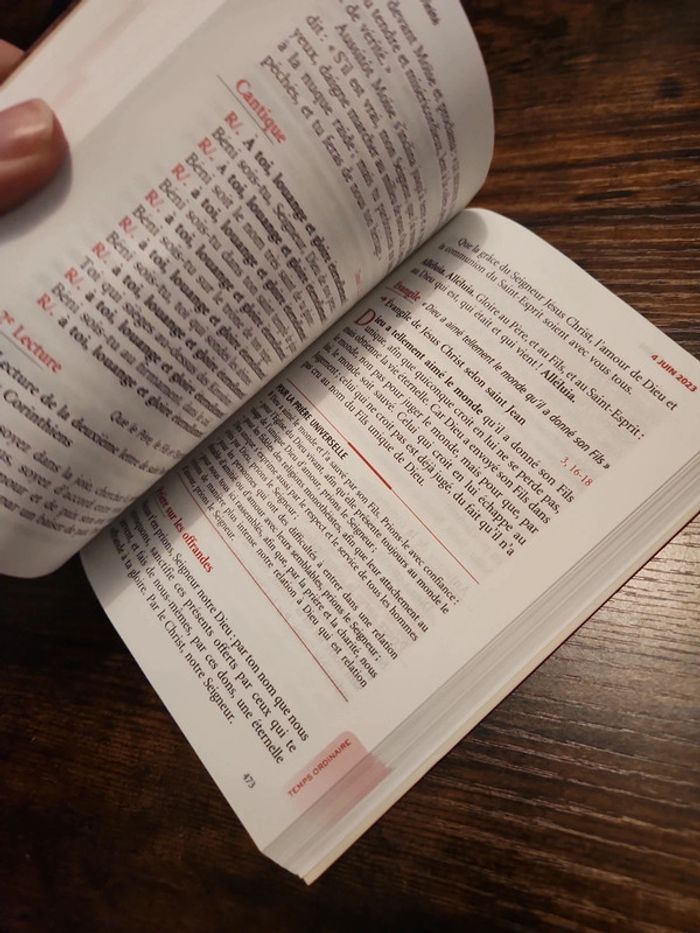 devant Moïse et proclama
tendre et miséricordieux, lent
de vérité. »
Aussitôt Moïse s'inclina jusqu'à
dit : « S'il est vrai, mon Seigneur, que
yeux, daigne marcher au milieu de nous
à la nuque raide ; mais tu
péchés, et tu feras de nous ton
Cantique
R/. À toi, louange et gloire éternellement
Béni sois-tu, Seigneur, Dieu
R/. À toi, louange et gloire éternellement
Béni soit le nom très
R/. à toi, louange et gloire éternellement
Béni sois-tu dans
R/. à toi, louange et gloire éternellement
Béni sois-tu sur le
R/. à toi, louange et gloire éternellement
Béni sois-tu,
Toi qui sièges au-dessus des
R/. à toi, louange et gloire éternellement
Béni sois-tu au firmament, dans le
R/. à toi, louange et gloire éternellement
2e Lecture
Lecture de la deuxième lettre de
Corinthiens
soyez dans la joie, cherchez
soyez d'accord entre
amour et de paix sera
uns les autres par un baiser de paix
4 JUIN 202
Que la grâce du Seigneur Jésus Christ, l'amour de Dieu et
la communion du Saint-Esprit soient avec vous tous.
Alléluia. Alléluia. Gloire au Père, et au Fils, et au Saint-Esprit :
au Dieu qui est, qui était et qui vient ! Alléluia.
Évangile « Dieu a aimé tellement le monde qu'il a donné son Fils »
Évangile de Jésus Christ selon saint Jean 3, 16-18
Dieu a tellement aimé le monde qu'il a donné son Fils
unique, afin que quiconque croit en lui ne se perde pas,
mais obtienne la vie éternelle. Car Dieu a envoyé son Fils dans
le monde, non pas pour juger le monde, mais pour que, par
lui, le monde soit sauvé. Celui qui croit en lui échappe au
Jugement ; celui qui ne croit pas est déjà jugé, du fait qu'il n'a
pas cru au nom du Fils unique de Dieu.
POUR LA PRIÈRE UNIVERSELLE
Dieu a aimé le monde et l'a sauvé par son Fils. Prions-le avec confiance :
l'Église du Dieu vivant, afin qu'elle présente toujours au monde le
Dieu d'amour, prions le Seigneur ;
fidèles des religions monothéistes, afin que leur attachement au
s'exprime aussi par le respect et le service de tous les hommes
prions le Seigneur ;
les personnes qui ont des difficultés à entrer dans une relation
d'amour avec leurs semblables, prions le Seigneur ;
nous tous ici rassemblés, afin que, par la prière et la charité, nous
de manière plus intense notre relation à Dieu qui est relation
prions le Seigneur.
Prière sur les offrandes
Nous t'en prions, Seigneur notre Dieu : par ton nom que nous
invoquons, sanctifie ces présents offerts par ceux qui te
servent, et fais de nous-mêmes, par ces dons, une éternelle
offrande à ta gloire. Par le Christ, notre Seigneur.
473
TEMPS ORDINAIRE